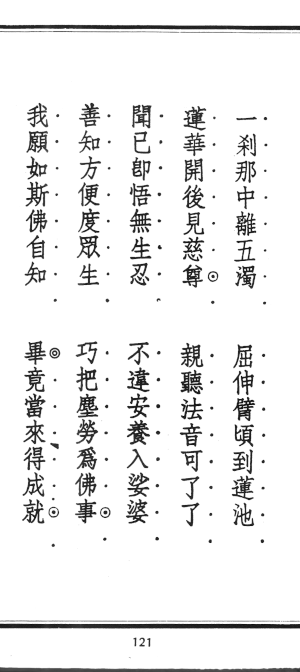 一刹那中離五濁 屈伸臂頃到蓮池
蓮華開後見慈尊 親聽法音可了了
聞已卽悟無生忍 不違安養入娑婆
善知方便度眾生 巧把塵勞爲佛事
我願如斯佛自知 畢竟當來得成就
121